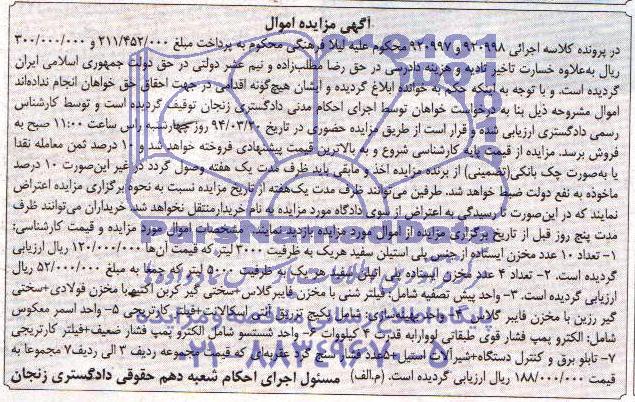 آگهی مزایده اموال
در پرونده کلاسه اجرائی ۹۲۰۹۹۸ و ۹۲۰۹۹۷ محکوم علیه لیلا فرهنگی محکوم به پرداخت مبلغ ۲۱۱/۴۵۲/۰۰۰ و ۳۰۰/۰۰۰/۰۰۰
ریال به‌علاوه خسارت تاخیر تادیه و هزینه دادرسی در حق رضا مطلب‌زاده و نیم عشر دولتی در حق دولت جمهوری اسلامی ایران
گردیده است. و با توجه به اینکه حکم به خوانده ابلاغ گردیده و ایشان هیچ‌گونه اقدامی در جهت احقاق حق خواهان انجام نداده‌اند
اموال مشروحه ذیل بنا به درخواست خواهان توسط اجرای احکام مدنی دادگستری زنجان توقیف گردیده است و توسط کارشناس
رسمی دادگستری ارزیابی شده و قرار است از طریق مزایده حضوری در تاریخ ۹۴/۰۳/۲۰ روز چهارشنبه راس ساعت ۱۱:۰۰ صبح به
فروش برسد. مزایده از قیمت پایه کارشناسی شروع و به بالاترین قیمت پیشنهادی فروخته خواهد شد و ۱۰ درصد ثمن معامله نقدا
یا به‌صورت چک بانکی(تضمینی) از برنده مزایده اخذ و مابقی باید ظرف مدت یک هفته وصول گردد در غیر این‌صورت ۱۰ درصد
ماخوذه به نفع دولت ضبط خواهد شد. طرفین می‌توانند ظرف مدت یک‌هفته از تاریخ مزایده نسبت به نحوه برگزاری مزایده اعتراض
نمایند که در این‌صورت تا رسیدگی به اعتراض از سوی دادگاه مورد مزایده به نام خریدار منتقل نخواهد شد خریداران می‌توانند ظرف
مدت پنج روز قبل از تاریخ برگزاری مزایده از اموال مورد مزایده بازدید نمایند. مشخصات اموال مورد مزایده و قیمت کارشناسی:
۱- تعداد ۱۰ عدد مخزن ایستاده از جنس پلی استیلن سفید هریک به ظرفیت ۳۰۰۰ لیتر که قیمت آن‌ها ۱۲۰/۰۰۰/۰۰۰ ریال ارزیابی
گردیده است. ۲- تعداد ۴ عدد مخزن ایستاده پلی اتیلن سفید هر یک به ظرفیت ۵۰۰۰ لیتر که جمعا به مبلغ ۵۲/۰۰۰/۰۰۰ ریال
ارزیابی گردیده است. ۳- واحد پیش تصفیه شامل: فیلتر شنی با مخزن فایبرگلاس-سختی گیر کربن اکتیو با مخزن فولادی+سختی
گیر رزین با مخزن فایبر گلاس ۴- واحد شامل: پکیج تزریق آنتی اسکالانت+فیلتر کارتریجی ۵- واحد اسمز معکوس
شامل: الکترو پمپ فشار قوی طبقاتی لووارا به قدرت ۴ کیلووات ۶- واحد شستسو شامل الکترو پمپ فشار ضعیف+فیلتر کارتریجی
۷- تابلو برق و کنترل دستگاه+شیرآلات استیل +۵عدد فشار سنج گرد عقربه‌ای که قیمت مجموعه ردیف ۳ الی ردیف۷ مجموعا به
قیمت ۱۸۸/۰۰۰/۰۰۰ ریال ارزیابی گردیده است. (م.الف) مسئول اجرای احکام شعبه دهم حقوقی دادگستری زنجان
ParsNamadData
۰۲۱-۸۸۳۴۹۶۷۰-۵